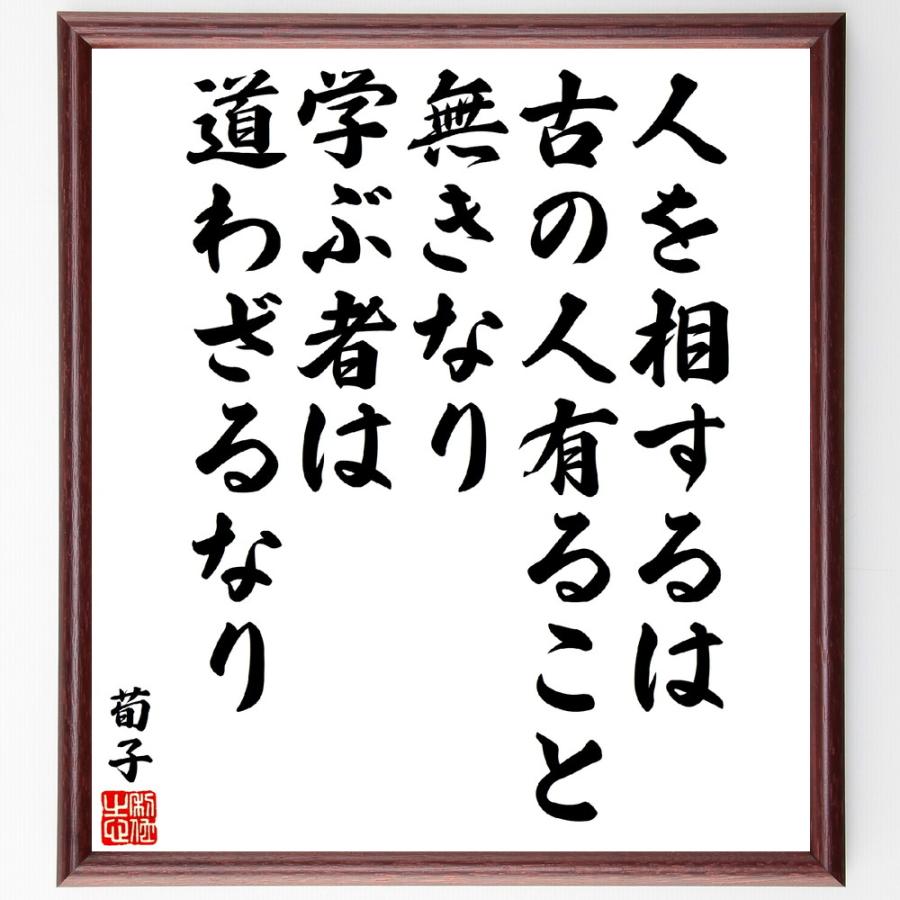 人を相するは
古の人有ること
無きなり
学ぶ者は
道わざるなり
荀子